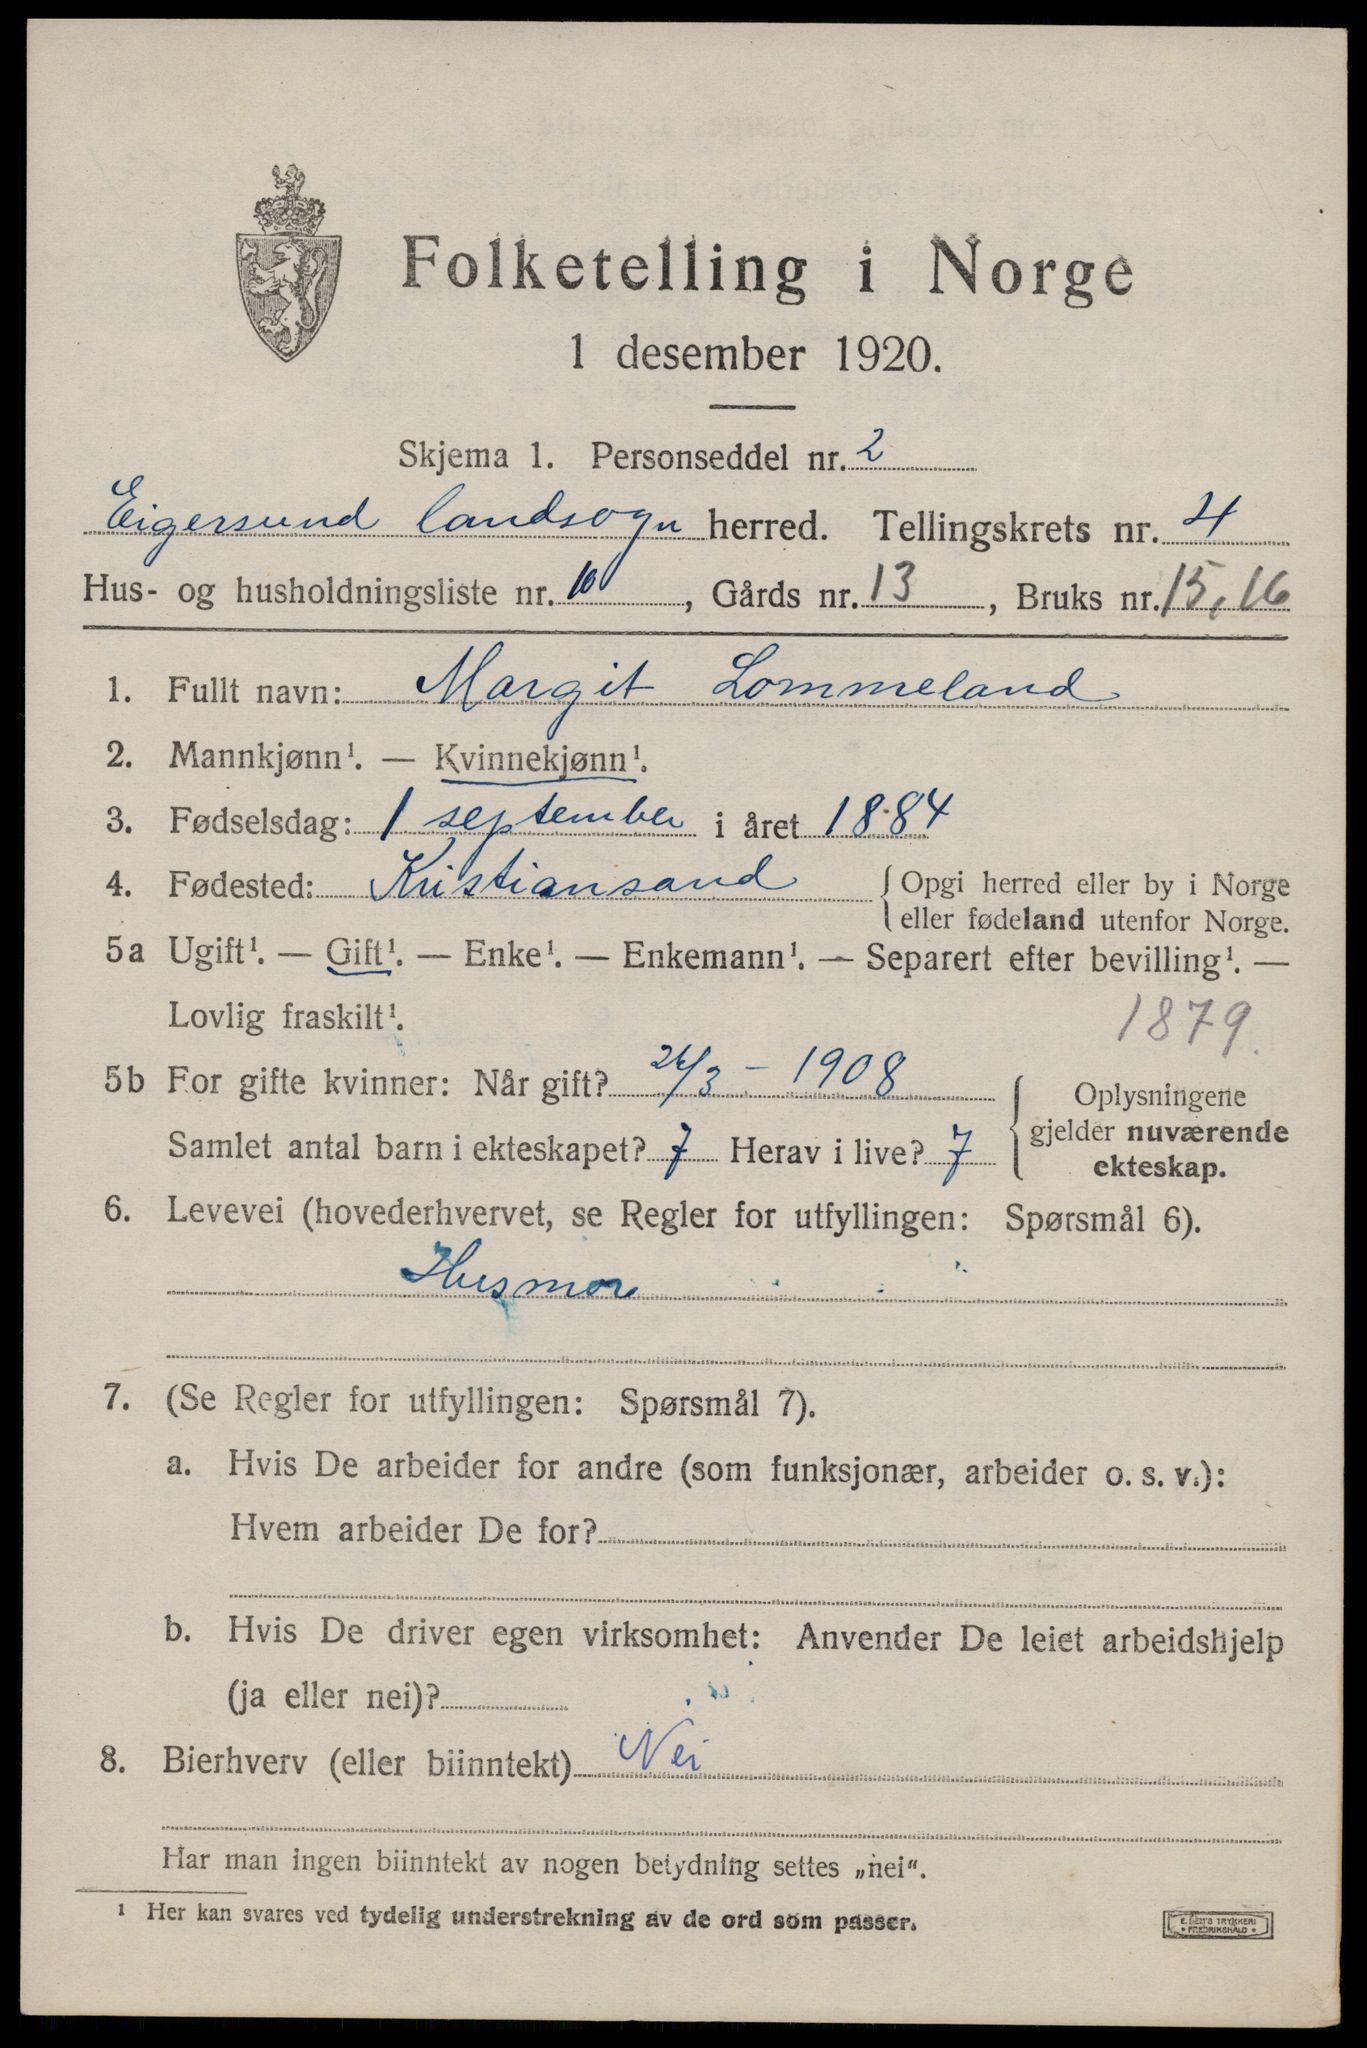 Folketelling i Norge
1 desember 1920.
Skjema 1. Personseddel nr. 2
Eigersund landsogn herred. Tellingskrets nr. 4
Hus- og husholdningsliste nr. 10, Gårds nr. 13, Bruks nr. 15, 16
1. Fullt navn: Margit Lommeland
2. Mannkjønn¹. — Kvinnekjønn¹.
3. Fødselsdag: 1 september i året 1884
4. Fødested: Kristiansand { Opgi herred eller by i Norge
eller fødeland utenfor Norge.
5a Ugift¹. — Gift¹. — Enke¹. — Enkemann¹. — Separert efter bevilling¹. —
Lovlig fraskilt¹. 1879.
5b For gifte kvinner: Når gift? 26/3 – 1908
Samlet antal barn i ekteskapet? 7 Herav i live? 7
Oplysningene
gjelder nuværende
ekteskap.
6. Levevei (hovederhvervet, se Regler for utfyllingen: Spørsmål 6).
Husmor
7. (Se Regler for utfyllingen: Spørsmål 7).
a. Hvis De arbeider for andre (som funksjonær, arbeider o. s. v.):
Hvem arbeider De for?
b. Hvis De driver egen virksomhet: Anvender De leiet arbeidshjelp
(ja eller nei)?
8. Bierhverv (eller biinntekt) Nei
Har man ingen biinntekt av nogen betydning settes „nei".
¹ Her kan svares ved tydelig understrekning av de ord som passer.
E. SEM'S TRYKKERI
• FREDRIKSHALD •